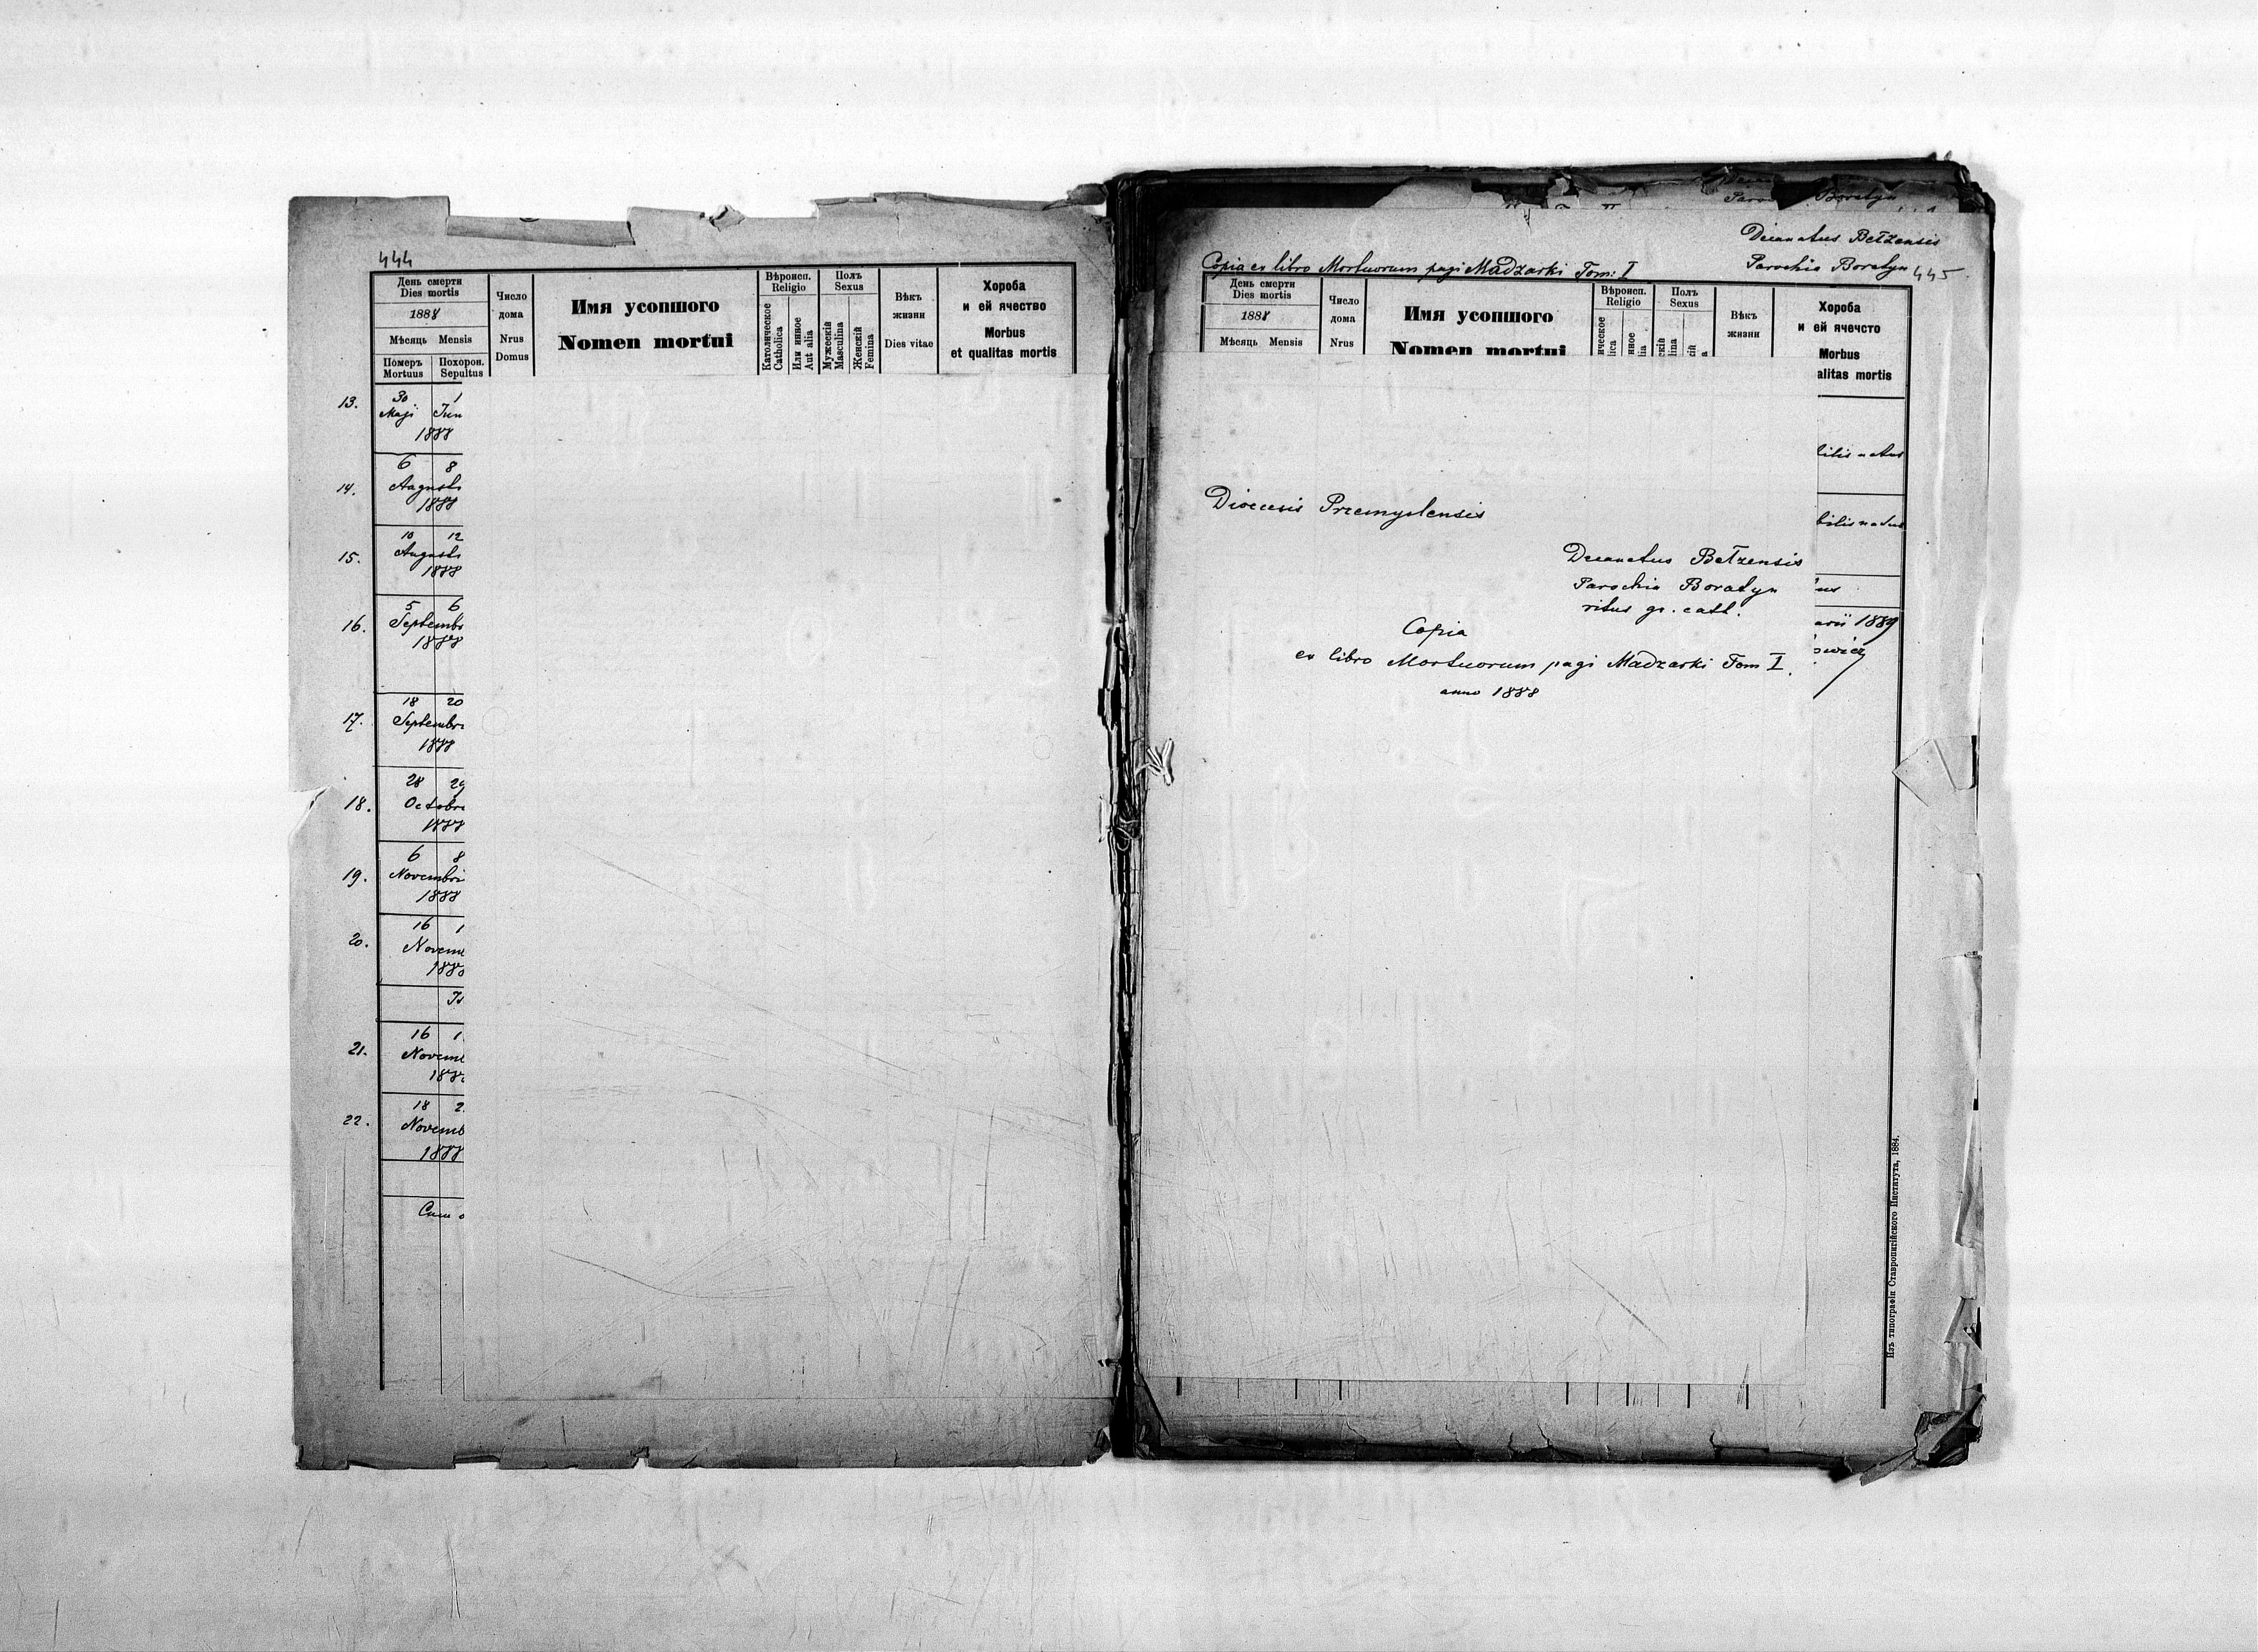 444
День смерти
Dies mortis
1888
Мѣсяць Mensis
Померъ Похорон.
Mortuus Sepultus
Число
дома
Nrus
Domus
Имя усопшого
Nomen mortui
Вѣроисп.
Religio
Католическое
Catholica
Или инное
Aut alia
Полъ
Sexus
Мужескій
Masculina
Женскій
Femina
Вѣкъ
жизни
Dies vitae
Хороба
и ей ячество
Morbus
et qualitas mortis
13. 30 1
Maji Jun
1888
14. 6 8
Augusti
1888
15. 10 12
Augusti
1888
16. 5 6
Septembr
1888
17. 18 20
Septembr
1888
18. 28 29
Octobr
1888
19. 6 8
Novembri
1888
20. 16 1
Novem
188
21. 16 1
Novem
188
22. 18 2
Novemb
1888
Boratyn
Decanatus Bełzensis
Parochia Boratyn 445
Copia ex libro Mortuorum pagi Madzarki Tom: I
День смерти
Dies mortis
1888
Мѣсяць Mensis
Число
дома
Nrus
Имя усопшого
Nomen mortui
Вѣроисп.
Religio
ическое
ica
нное
lia
Полъ
Sexus
скій
lina
ій
a
Вѣкъ
жизни
Хороба
и ей ячечсто
Morbus
alitas mortis
bilis natus
arii 1889
Dioecesis Premyslensis
Decanatus Bełzensis
Parochia Boratyn
ritus gr. cath.
Copia
ex libro Mortuorum pagi Madzarki Tom I.
anno 1888
Изъ типографіи Ставропигійского Института, 1884.